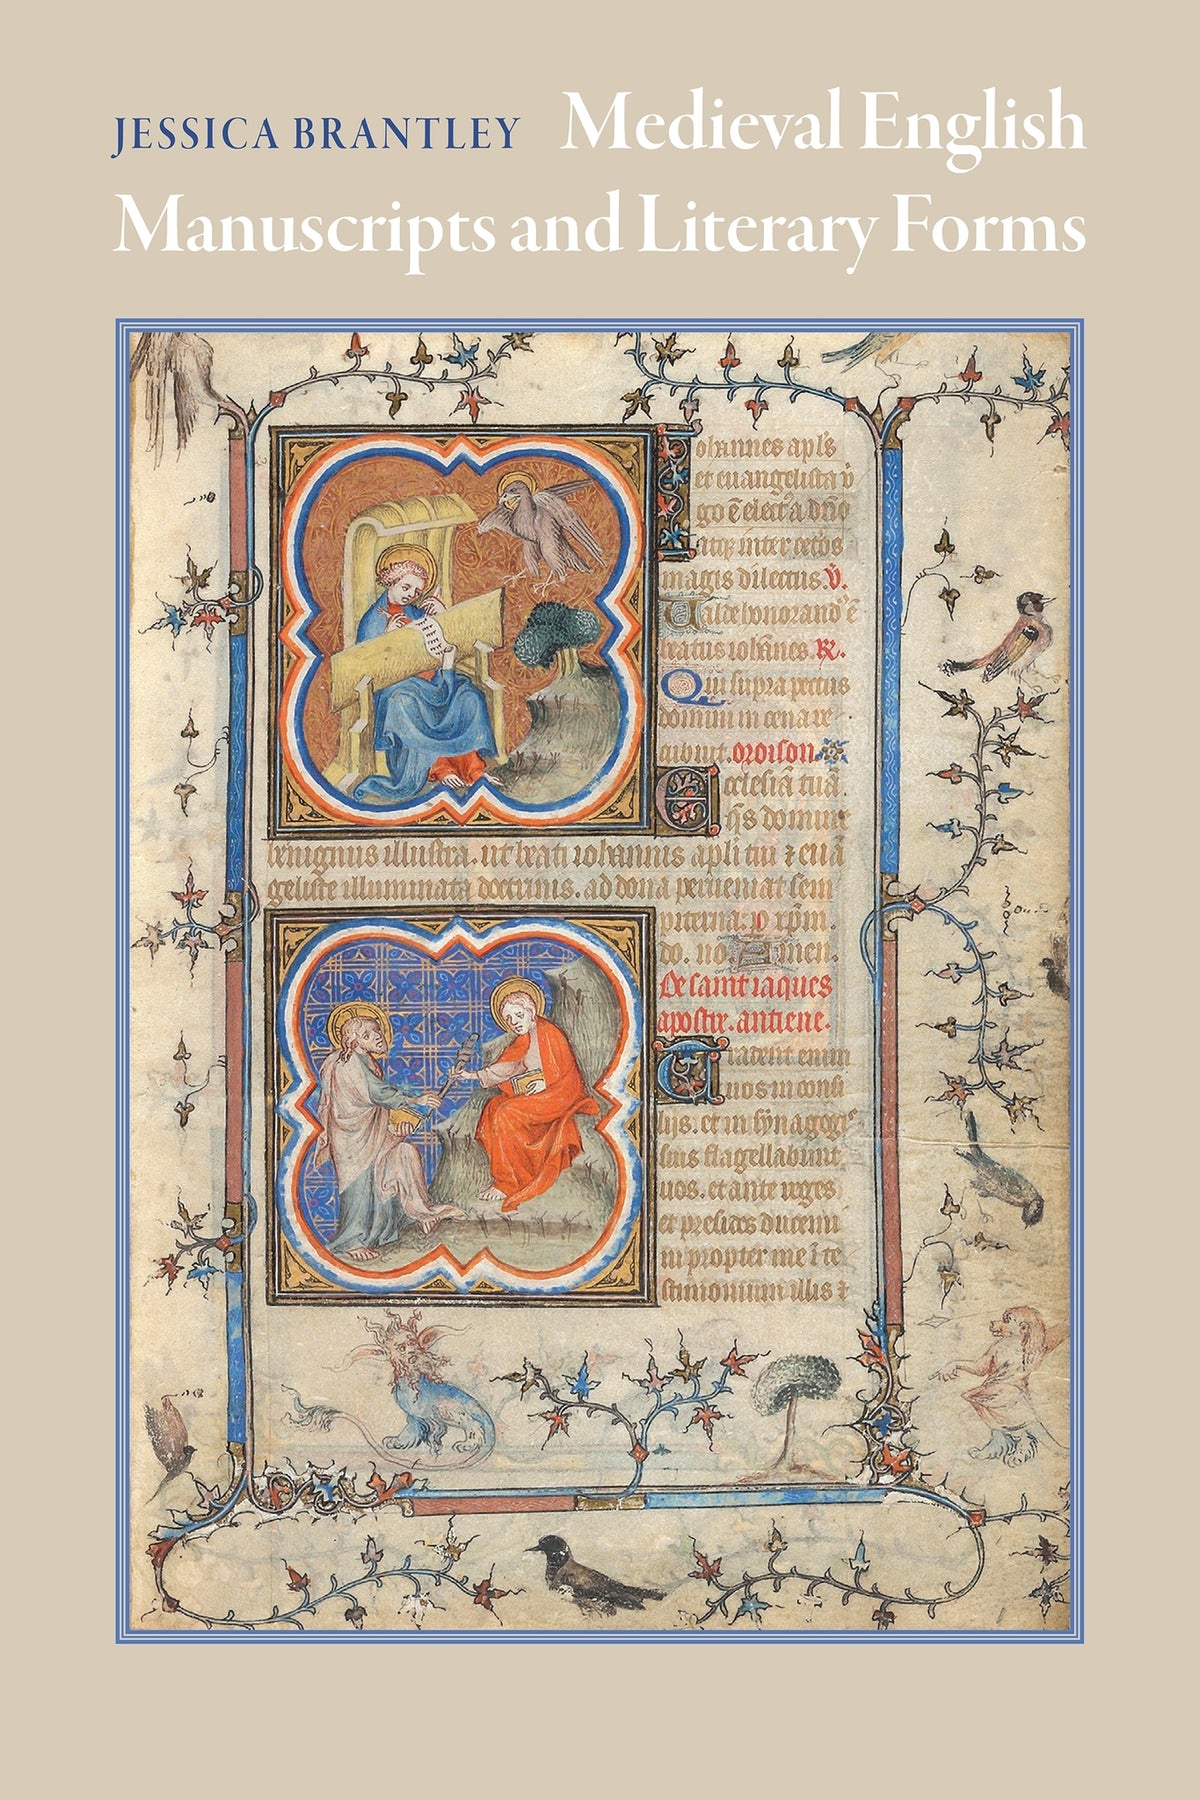 JESSICA BRANTLEY Medieval English
Manuscripts and Literary Forms
Iohannes apl̄s
et euangelista v̄
go ē elect᷒ a dn̄o
atqꝫ inter cet̄os
magis dilectus. v̄.
Valde honorand᷒ ē
beatus ioh̄nnes R̄.
Qui supra pectus
domini in cena re
cubuit. oroison
Ecclesiā tuā.
q̄s domine
benignus illustra. ut beati iohannis apl̄i tui ⁊ euā
geliste illuminata doctrinis. ad dona perueniat sem
piterna. p xp̄m.
do. no. Amen.
De saint iaques
apostre. antiene.
Tradent enim
uos in consi
liis. et in synagogis
suis flagellabunt
uos. et ante reges
et presides duceni
ni propter me ī te
stimonium illis ⁊